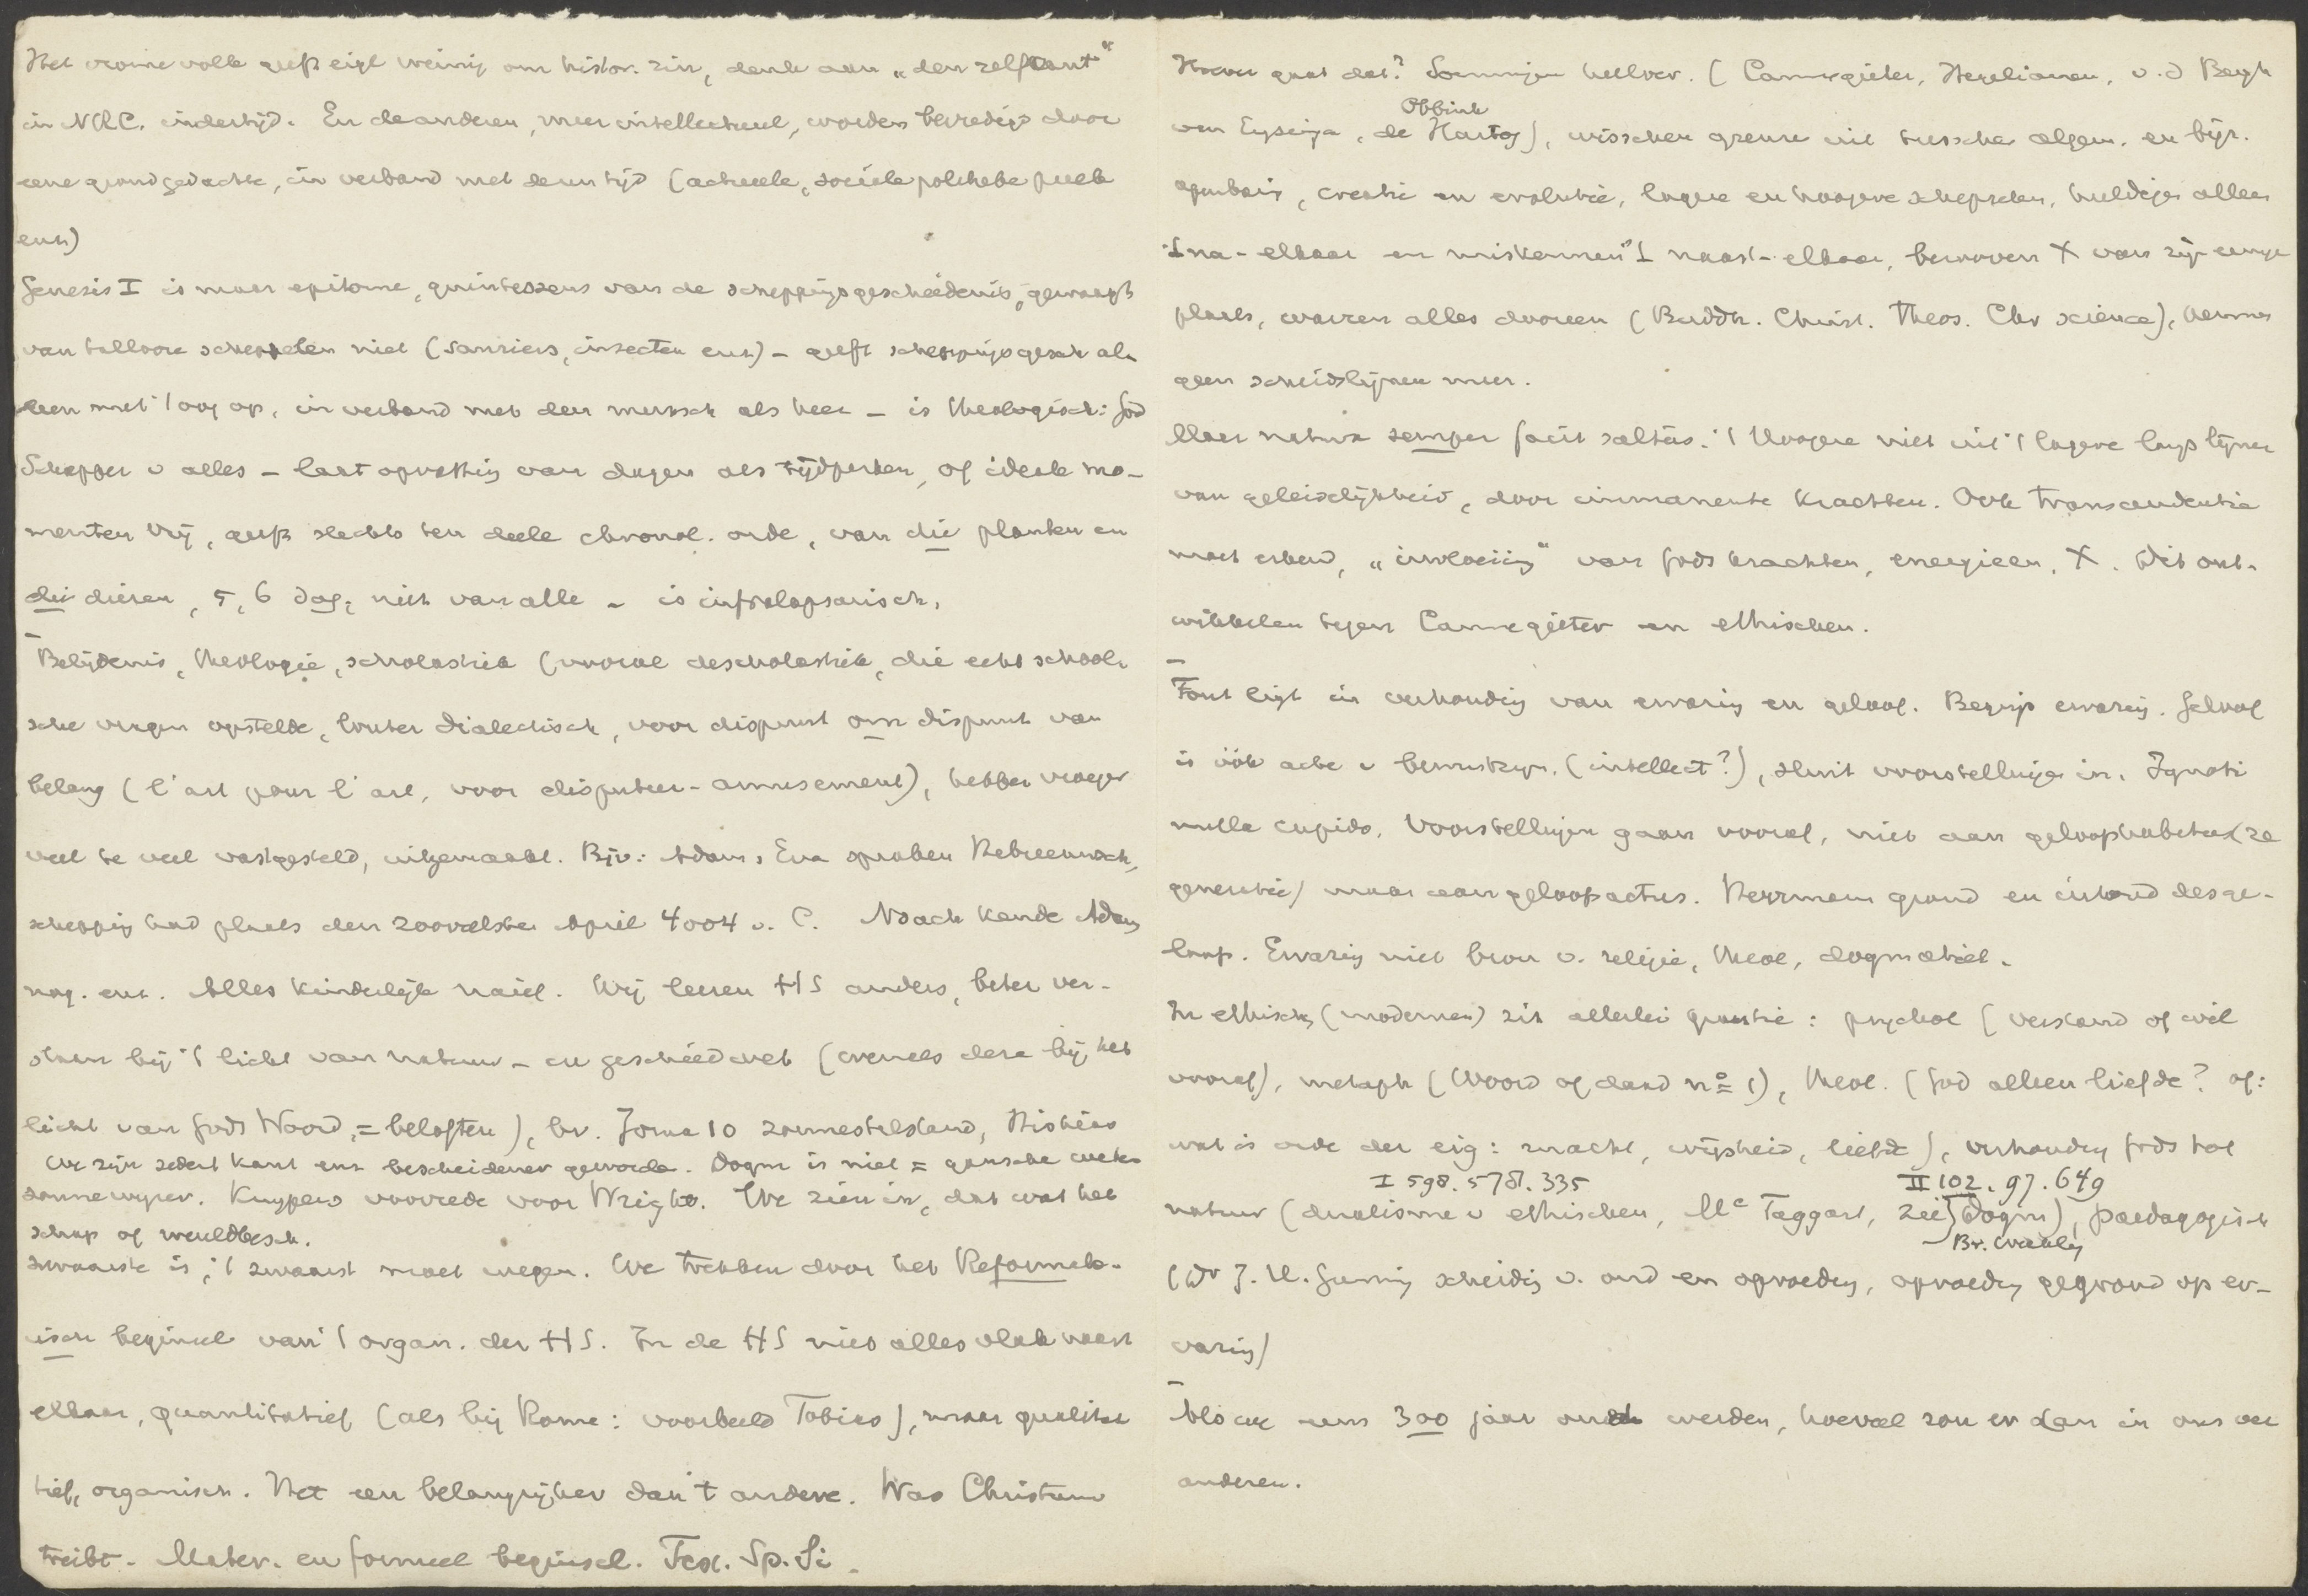 Het vrome volk geeft eigl weinig om histor. zin, denk aan „den zelfkant"
in NRC. indertijd. En de anderen, meer intellectueel, worden bevredigd door
eene grondgedachte, in verband met dezen tijd (actueele, sociele politieke preek
enz)
Genesis I is maar epitome, quintessens van de scheppingsgeschiedenis, gewaagt
van tallooze schepselen niet (sauriers, insecten enz) - geeft scheppingsgesch al-
leen met 't oog op, in verband met den mensch als heer - is theologisch: God
Schepper v alles - laat opvatting van dagen als tijdperken, of ideale mo-
menten vrij, geeft slechts ten deele chronol. orde, van die planten en
die dieren, 5, 6 dag, niet van alle - is infralapsarisch.
Belijdenis, theologie, scholastiek (vooral de scholastiek, die echt school-
sche vragen opstelde, louter dialectisch, voor dispuut om dispuut van
belang (l'art pour l'art, voor disputeer-amusement), hebben vroeger
veel te veel vastgesteld, uitgemaakt. Bijv: Adam, Eva spraken Hebreeuwsch,
schepping had plaats den zooveelsten April 4004 v. C. Noach kende Adam
nog. enz. Alles kinderlijk naief. Wij leeren HS anders, beter ver-
staan bij 't licht van natuur- en geschiedwet (evenals deze bij het
licht van Gods Woord, = beloften), bv. Jozua 10 zonnestilstand, Hiskias
We zijn sedert Kant enz bescheidener geworden. Dogm is niet = gansche weten
zonnewijzer. Kuypers voorrede voor Wright. We zien in, dat wat het
schap of wereldbesch.
zwaarste is, 't zwaarst moet wegen. We trekken door het Reformato-
risch beginsel van 't organ. der HS. In de HS niet alles vlak naast
elkaar, quantitatief (als bij Rome: voorbeeld Tobias), maar qualita-
tief, organisch. Het een belangrijker dan 't andere. Was Christum
treibt. Mater. en formeel beginsel. Tes. Sp. Si.
Hoever gaat dat? Sommigen hellver. (Cannegieter, Hegelianen, v. d Bergh
Obbink
van Eysinga, de Hartog), wisschen grenzen uit tusschen algem. en bijz.
openbaring, creatie en evolutie, lagere en hoogere schepselen, huldigen alleen
't na-elkaar en miskennen 't naast-elkaar, berooven X van zijn eenige
plaats, warren alles dooreen (Buddh. Christ. Theos. Chr science), kennen
geen scheidslijnen meer.
Maar natura semper facit saltus. 't Hoogere niet uit 't lagere langs lijnen
van geleidelijkheid, door immanente krachten. Ook transcendentie
moet erkend, „invloeiing" van Gods krachten, energieen, X. Dit ont-
wikkelen tegen Cannegieter en ethischen.
Fout ligt in verhouding van ervaring en geloof. Begrip ervaring. Geloof
is óók acte v bewustzijn. (intellect?), sluit voorstellingen in. Ignoti
nulla cupido. Voorstellingen gaan vooraf, niet aan geloofshabitus (re
generatie) maar aan geloofsactus. Herrmann grond en inhoud des ge-
loofs. Ervaring niet bron v. religie, theol, dogmatiek.
In ethisch (modernen) zit allerlei quaestie: psychol (verstand of wil
vooraf), metaph (Woord of daad n° 1), theol. (God alleen liefde? of:
wat is orde der eig: macht, wijsheid, liefde), verhouding Gods tot
I 598. 578. 335
II 102. 97. 649
natuur (dualisme v ethischen, Mc Taggart, zie Dogm), paedagogisch
Br. Weekly
(Dr J. H. Gunning scheiding v. ond en opvoeding, opvoeding gegrond op er-
varing)
Als we eens 300 jaar oud werden, hoeveel zou er dan in ons ver
anderen.